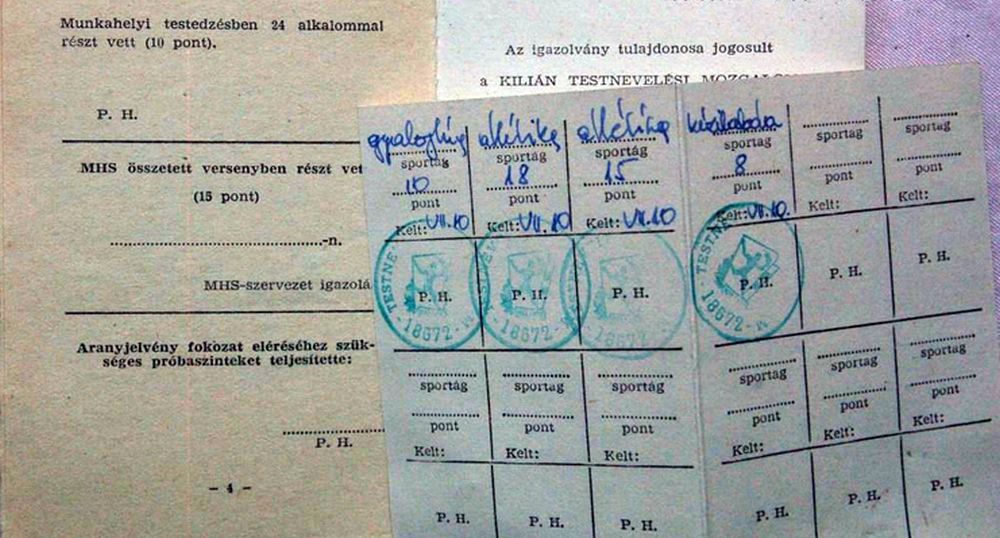 Munkahelyi testedzésben 24 alkalommal
részt vett (10 pont).
P. H.
MHS összetett versenyben részt vet
(15 pont)
-n.
MHS-szervezet igazolá
Aranyjelvény fokozat eléréséhez szük-
séges próbaszinteket teljesítette:
P. H.
- 4 -
Az igazolvány tulajdonosa jogosult
a KILIÁN TESTNEVELÉSI MOZGALOM
gyaloglás atlétika atlétika kézilabda
sportág sportág sportág sportág sportág sportág
10 18 15 8
pont pont pont pont pont pont
Kelt: VII.10 Kelt: VII.10 Kelt: VII.10 Kelt: VII.10. Kelt: Kelt:
P. H. P. H. P. H. P. H. P. H. P. H.
TESTNE 18672 18672 18672 TESTNEV 18672
sportág sportág sportág sportág sportág sportág
pont pont pont pont pont pont
Kelt: Kelt: Kelt: Kelt: Kelt: Kelt:
P. H. P. H. P. H. P. H. P. H. P. H.